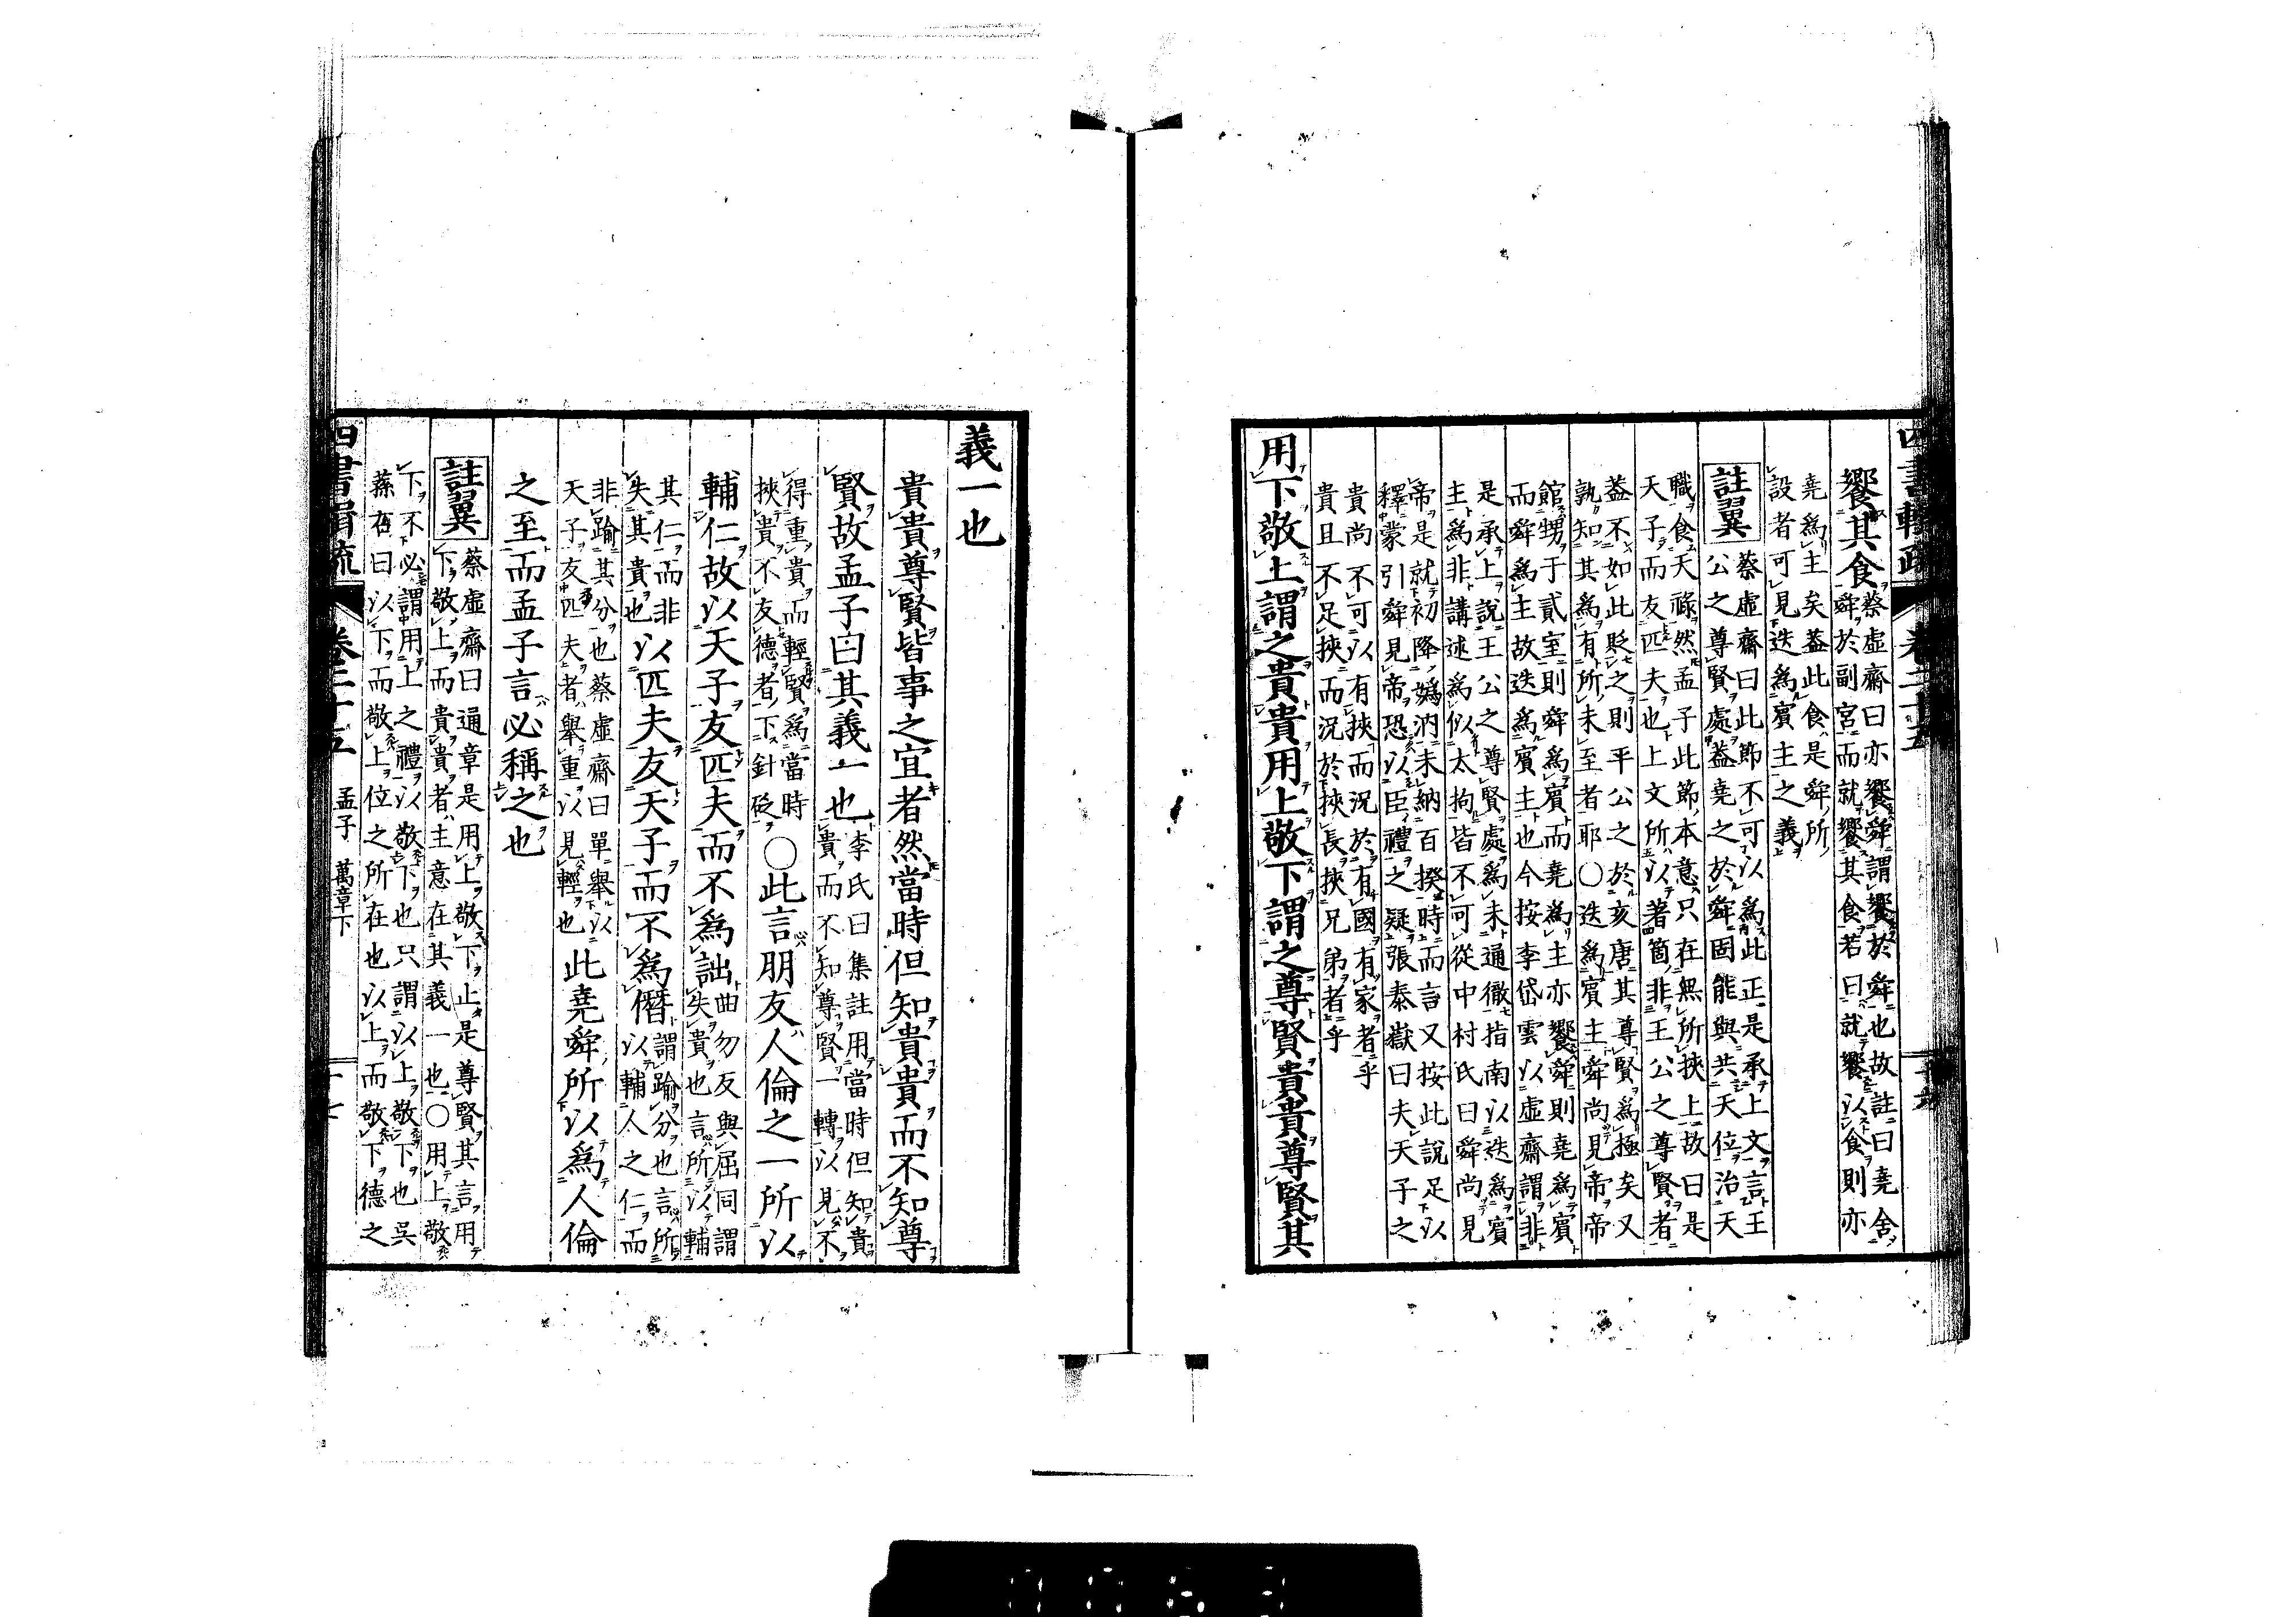 四書輯疏 卷二十五
饗其食
蔡虛齋曰亦饗舜謂饗於舜也故註曰堯舍
舜於副宮而就饗其食若曰就饗以食則亦
堯爲主矣蓋此食是舜所
設者可見迭爲賓主之義
註翼
蔡虛齋曰此節不可以爲此正是承上文言王
公之尊賢處蓋堯之於舜固能與共天位治天
職食天祿然孟子此節本意只在無所挾上故曰是
天子而友匹夫也上文所以著箇非王公之尊賢者
蓋不如此貶之則平公之於亥唐其尊賢爲極矣又
孰知其爲有所未至者耶〇迭爲賓主舜尚見帝帝
館甥于貳室則舜爲賓而堯爲主亦饗舜則堯爲賓
而舜爲主故迭爲賓主也今按李岱雲以虛齋謂非
是承上說王公之尊賢處爲未通徹指南以迭爲賓
主爲非講述爲似太拘皆不可從中村氏曰舜尚見
帝是就初降嬀汭未納百揆時而言又按此說足以
釋蒙引舜見帝恐以臣禮之疑張泰嶽曰夫天子之
貴尚不可以有挾而況於有國有家者乎
貴且不足挾而況於挾長挾兄弟者乎
用下敬上謂之貴貴用上敬下謂之尊賢貴貴尊賢其
義一也
貴貴尊賢皆事之宜者然當時但知貴貴而不知尊
賢故孟子曰其義一也
李氏曰集註用當時但知貴
貴而不知尊賢一轉以見不
得重貴而輕賢爲當時
挾貴不友德者下針砭
〇此言朋友人倫之一所以
輔仁故以天子友匹夫而不爲詘
曲勿反與屈同謂
失貴也言所以輔
其仁而非
失其貴也
以匹夫友天子而不爲僭
謂踰分也言所
以輔人之仁而
非踰其分也蔡虛齋曰單舉以
天子友匹夫者舉重以見輕也
此堯舜所以爲人倫
之至而孟子言必稱之也
註翼
蔡虛齋曰通章是用上敬下止是尊賢其言用
下敬上而貴貴者主意在其義一也〇用上敬
下不必謂用上之禮以敬下也只謂以上敬下也吳
蓀右曰以下而敬上位之所在也以上而敬下德之
四書輯疏 卷二十五 孟子 萬章下 十七